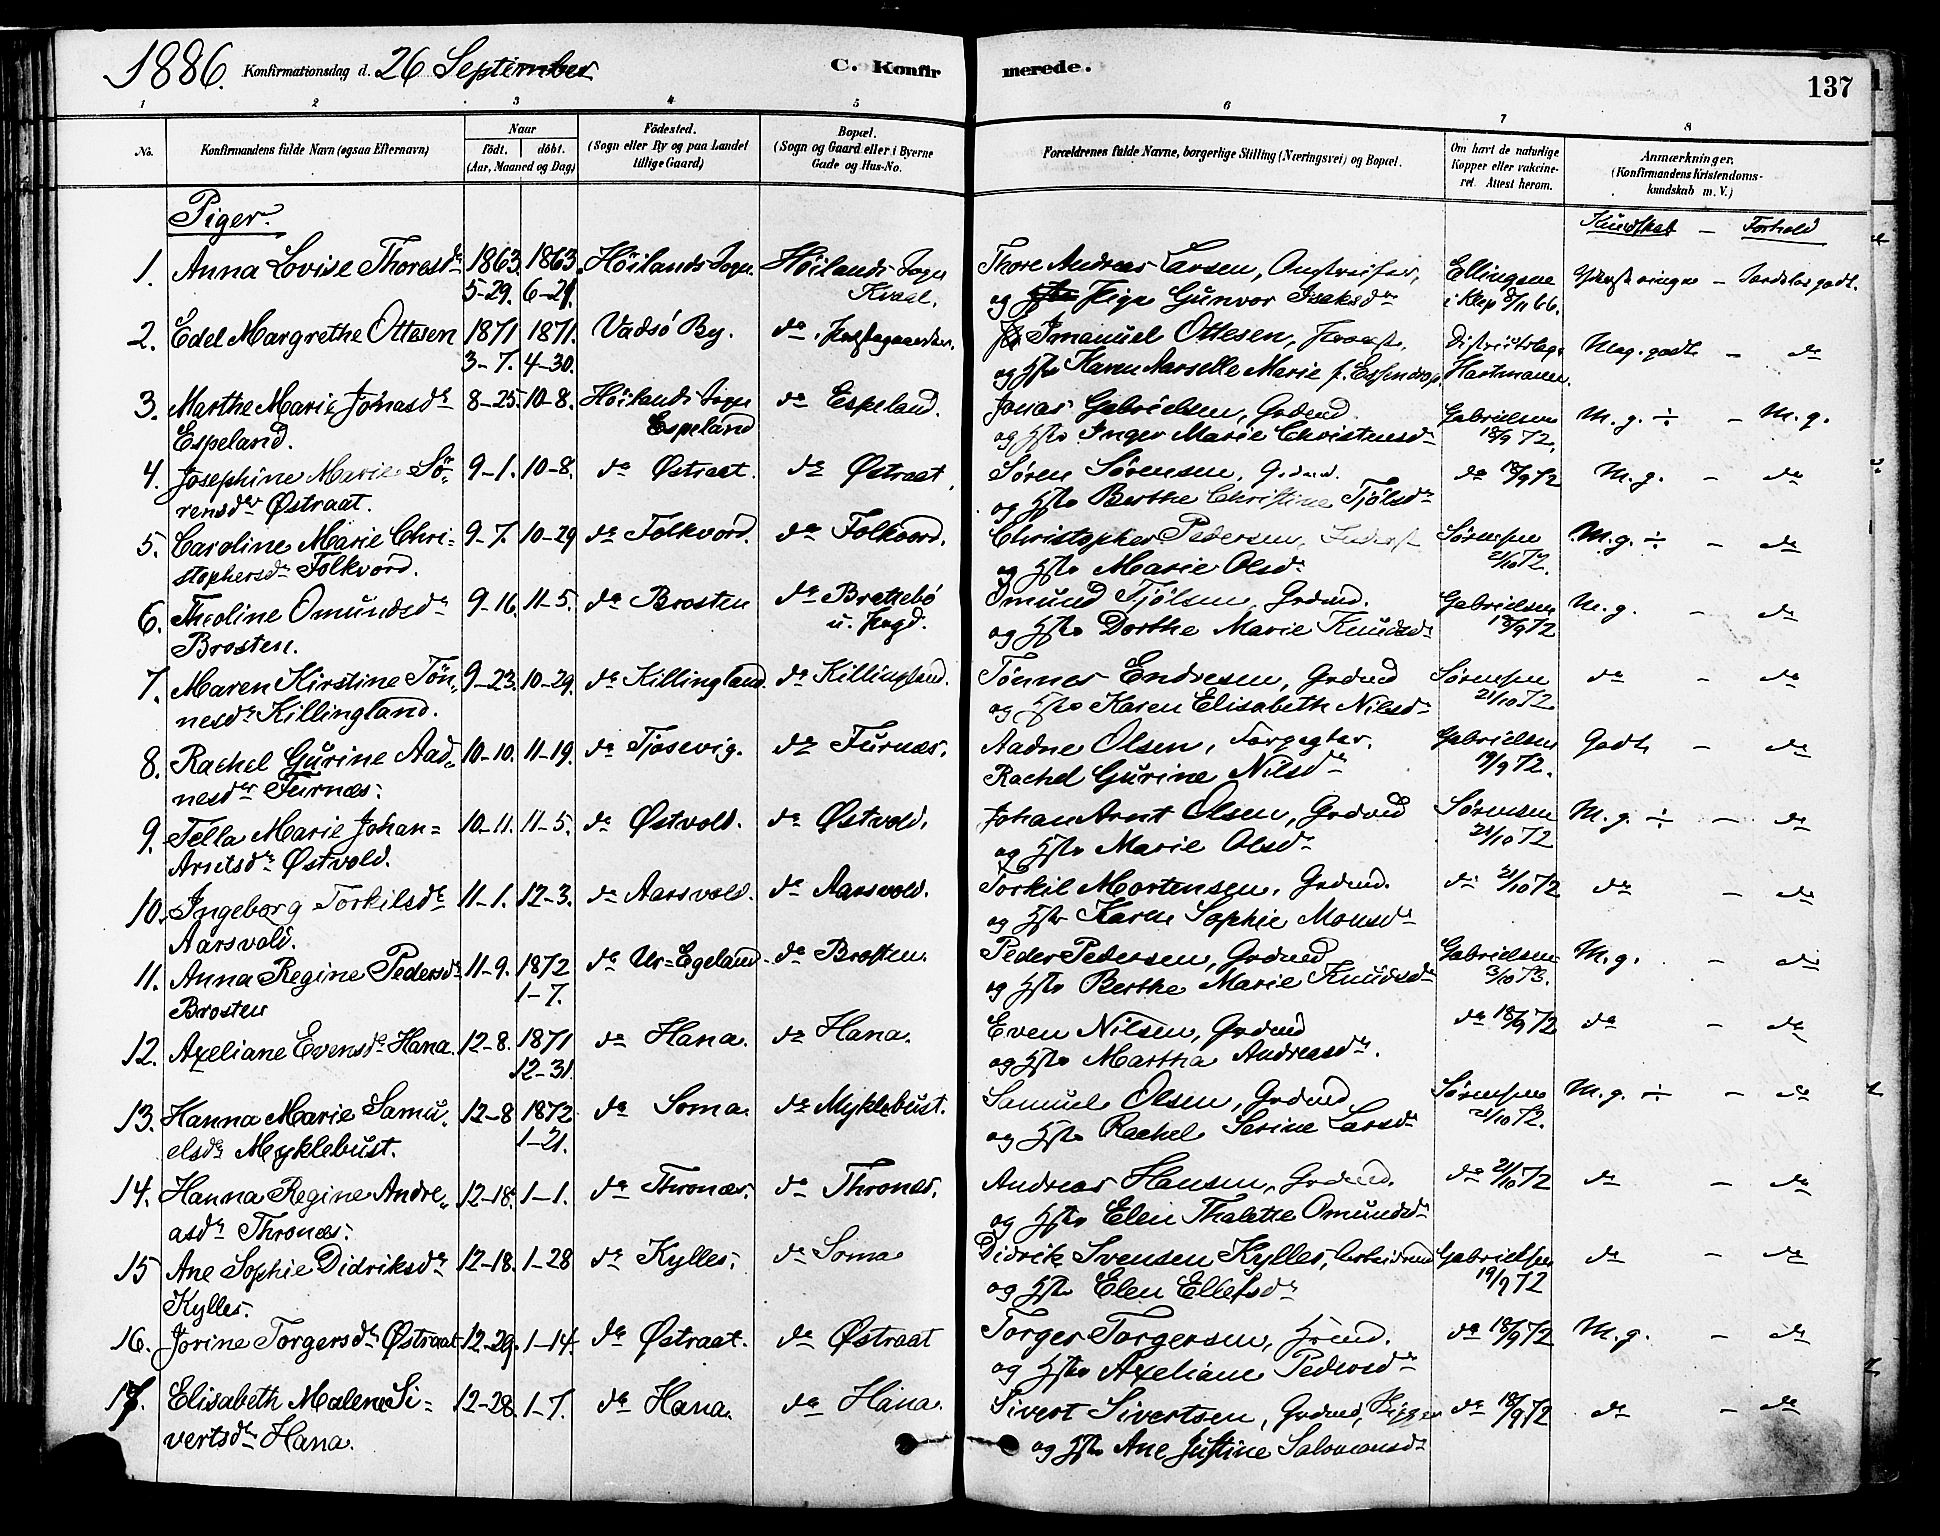 1886. Konfirmationsdag d. 26 September C. Konfirmerede. 137
1 2 3 4 5 6 7 8
No. Konfirmandens fulde Navn (ogsaa Efternavn) Naar Födt. döbt. (Aar, Maaned og Dag) Födested. (Sogn eller By og paa Landet tillige Gaard) Bopæl. (Sogn og Gaard eller i Byerne Gade og Hus-No. Forældrenes fulde Navne, borgerlige Stilling (Næringsvei) og Bopæl. Om havt de naturlige Kopper eller vakcineret. Attest herom. Anmærkninger. (Konfirmandens Kristendomskundskab m. V.)
Piger. Kundskab – Forhold
1. Anna Lovise Thoresdr 1863. 1863. Höilands Sogn Höilands Sogn Thore Andreas Larsen, Ellingsen
5-29. 6-21. Kvaal. og Pige Gunvor Isaksdr i Klep 8/11 66.
2. Edel Margrethe Ottesen 1871 1871. Vadsö By. do Imanuel Ottesen, Distriktslæge Meg. godt – do
3-7. 4-30. og Hstr Karen Marselle Marie f. Essendrop Hartmann.
3. Marthe Marie Jonasdr 8-25. 10-8. Höilands Sogn do Espeland. Jonas Gabrielsen, Grdmd. Gabrielsen M. g. ÷ – M. g.
Espeland. Espeland og Hstr Inger Marie Christensdr 18/9 72.
4. Josephine Marie Sö- 9-1. 10-8. do Østraat. do Østraat. Søren Sørensen, Grdmd. do 18/9 72 M. g. – do
rensdr Østraat. og Hstr Berthe Christine Tjölsdr
5. Caroline Marie Chri- 9-7. 10-29 do Folkvord. do Folkvord. Christopher Pedersen, Sörensen M. g. ÷ – do
stophersdr Folkvord. og Hstr Marie Olsdr 21/10 72.
6. Theoline Omundsdr 9-16. 11-5. do Brosten do Brettebö Omund Tjölsen, Grdmd. Gabrielsen M. g. – do
Brosten. u. Hogd. og Hstr Dorthe Marie Knudsdr 18/9 72
7. Maren Kirstine Tön- 9-23. 10-29. do Killingland. do Killingland. Tönnes Endresen, Grdmd Sörensen do – do
nesdr Killingland. og Hstr Karen Elisabeth Nilsdr 21/10 72.
8. Rachel Gurine Aad- 10-10. 11-19. do Tjösevig. do Furnæs. Aadne Olsen, Forpagter. Gabrielsen Godt – do
nesdr Furnæs. Rachel Gurine Nilsdr 19/9 72.
9. Tella Marie Johan- 10-11. 11-5. do Østvold. do Østvold. Johan Arnt Olsen, Grdmd Sörensen M. g. ÷ – do
Arntsdr Østvold. og Hstr Marie Olsdr 21/10 72
10. Ingeborg Torkilsdr 11-1. 12-3. do Aarsvold. do Aarsvold. Torkil Mortensen, Grdmd. do 21/10 72 do – do
Aarsvold. og Hstr Karen Sophie Monsdr
11. Anna Regine Pedersdr 11-9. 1872 do Ur-Egeland do Brosten. Peder Pedersen, Grdmd Gabrielsen M. g. – do
Brosten 1-7. og Hstr Berthe Marie Knudsdr 3/10 73.
12. Axeliane Evensdr Hana. 12-8. 1871 do Hana. do Hana. Even Nilsen, Grdmd do 18/9 72 do – do
12-31. og Hstr Martha Andreasdr.
13. Hanna Marie Samu- 12-8 1872 do Soma. do Myklebust. Samuel Olsen, Grdmd Sörensen M. g. ÷ – do
elsdr Myklebust. 1-21. og Hstr Rachel Serine Larsdr 21/10 72.
14. Hanna Regine Andre- 12-18. 1-1. do Thronæs. do Thronæs. Andreas Hansen, Grdmd. do 21/10 72 do – do
asdr Thronæs. og Hstr Elen Thalette Omundsdr
15 Ane Sophie Didriksdr 12-18. 1-28 do Kylles. do Soma Didrik Svensen Kylles, Arbeidsmd Gabrielsen do – do
Kylles. og Hstr Elen Ellefsdr 19/9 72
16. Jorine Torgersdr Østraat 12-29. 1-14. do Østraat. do Østraat Torger Torgersen, do 18/9 72 M. g. – do
og Hstr Axeliane Pedersdr
17. Elisabeth Malene Si- 12-28. 1-7. do Hana. do Hana. Sivert Sivertsen, Grdmd, do 18/9 72 do – do
vertsdr Hana. og Hstr Ane Justine Salomonsdr